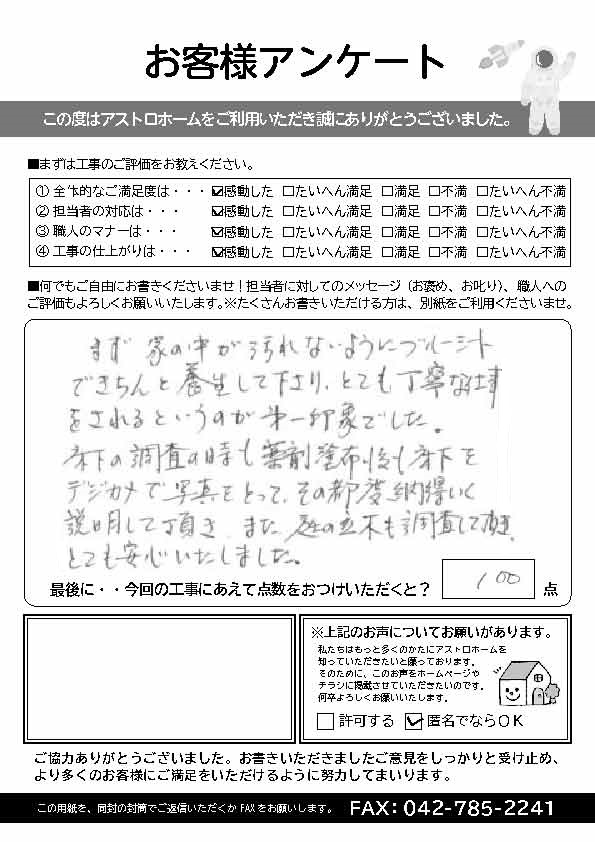 お客様アンケート
この度はアストロホームをご利用いただき誠にありがとうございました。
■まずは工事のご評価をお教えください。
①全体的なご満足度は・・・☑感動した □たいへん満足 □満足 □不満 □たいへん不満
②担当者の対応は・・・ ☑感動した □たいへん満足 □満足 □不満 □たいへん不満
③職人のマナーは・・・ ☑感動した □たいへん満足 □満足 □不満 □たいへん不満
④工事の仕上がりは・・・ ☑感動した □たいへん満足 □満足 □不満 □たいへん不満
■何でもご自由にお書きくださいませ！担当者に対してのメッセージ（お褒め、お叱り）、職人への
ご評価もよろしくお願いいたします。※たくさんお書きいただける方は、別紙をご利用くださいませ。
まず 家の中が汚れないようにブルーシート
できちんと養生して下さり、とても丁寧な仕事
をされるというのが第一印象でした。
床下の調査の時も薬剤塗布後も床下を
デジカメで写真をとって、その都度納得いく
説明して頂き、また、庭の立木も調査して頂き
とても安心いたしました。
最後に・・今回の工事にあえて点数をおつけいただくと？ 100 点
※上記のお声についてお願いがあります。
私たちはもっと多くのかたにアストロホームを
知っていただきたいと願っております。
そのために、このお声をホームページや
チラシに掲載させていただきたいのです。
何卒よろしくお願いいたします。
□許可する ☑匿名でならＯＫ
ご協力ありがとうございました。お書きいただきましたご意見をしっかりと受け止め、
より多くのお客様にご満足をいただけるように努力してまいります。
この用紙を、同封の封筒でご返信いただくか FAX をお願いします。 FAX：042-785-2241